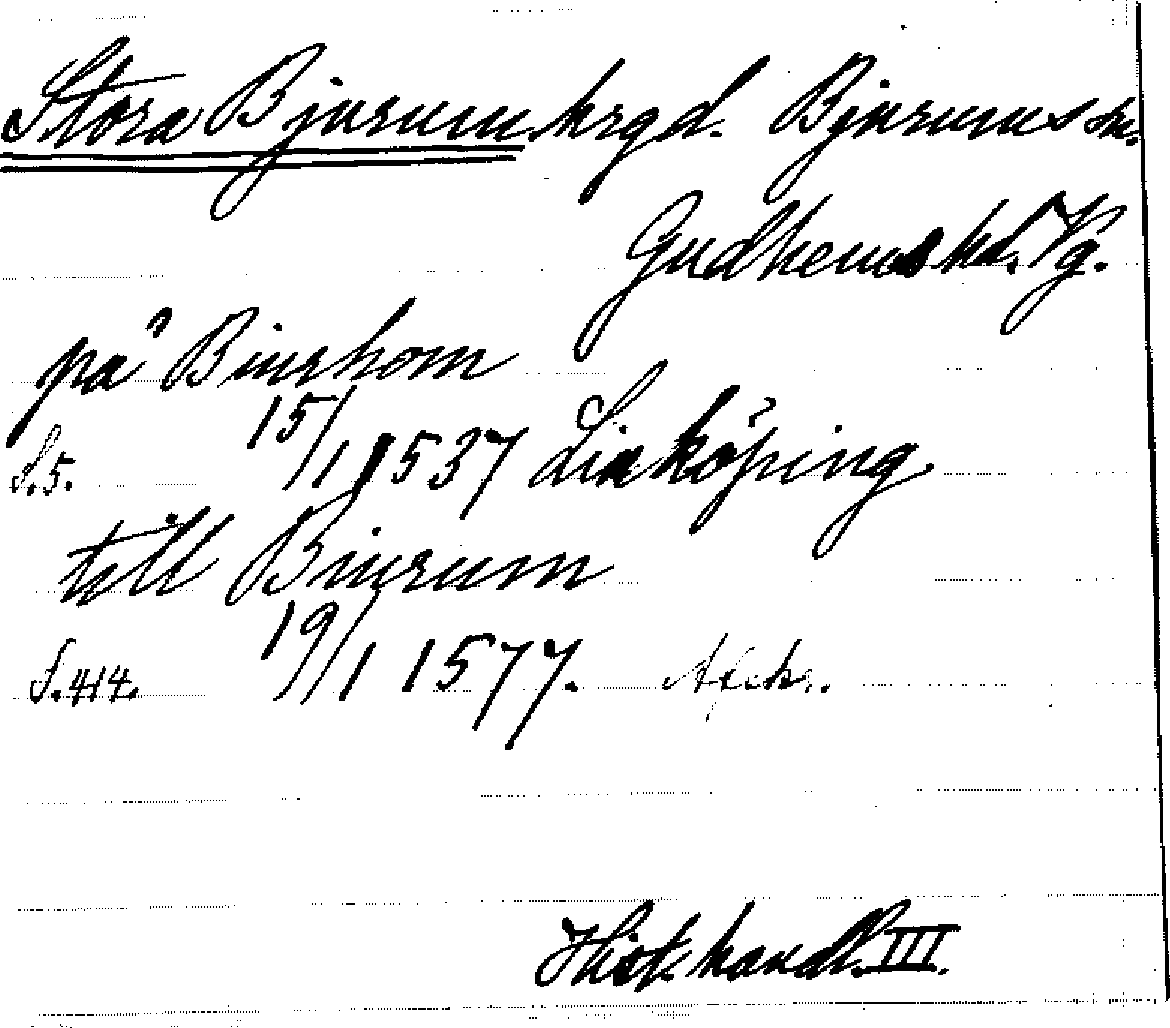 Stora Bjurum hrgd. Bjurums sn.
Gudhems hd. Vg.
på Biurhom
S.5. 15/1 1537 Linköping
till Biurum
S.414. 19/1 1577. Afskr.
Hist. handl. III.